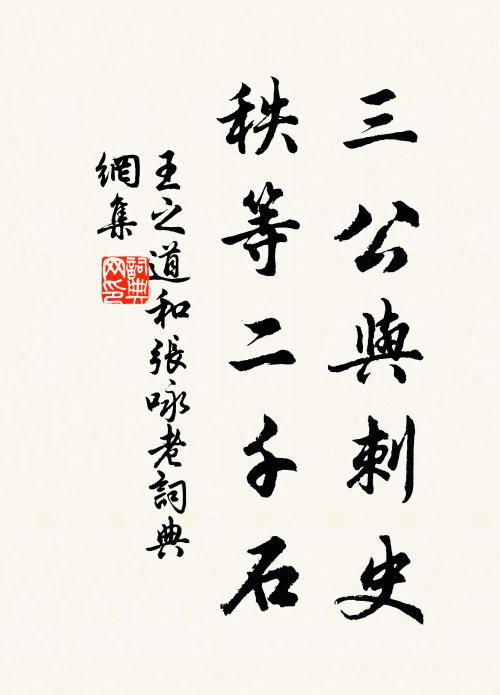 三公與刺史
秩等二千石
王之道和張咏老詞典
網集
詞典
网印